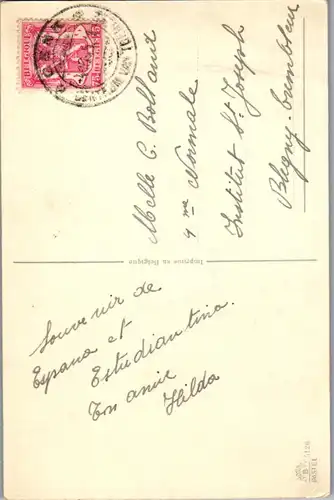 Souvenir de
Espana et
Estudiantina.
Ton amie
Hilda
Melle C. Bollant
4me Normale
Institut St. Joseph
Blégny-Trembleur
Imprimé en Belgique
BELGIQUE
GENT